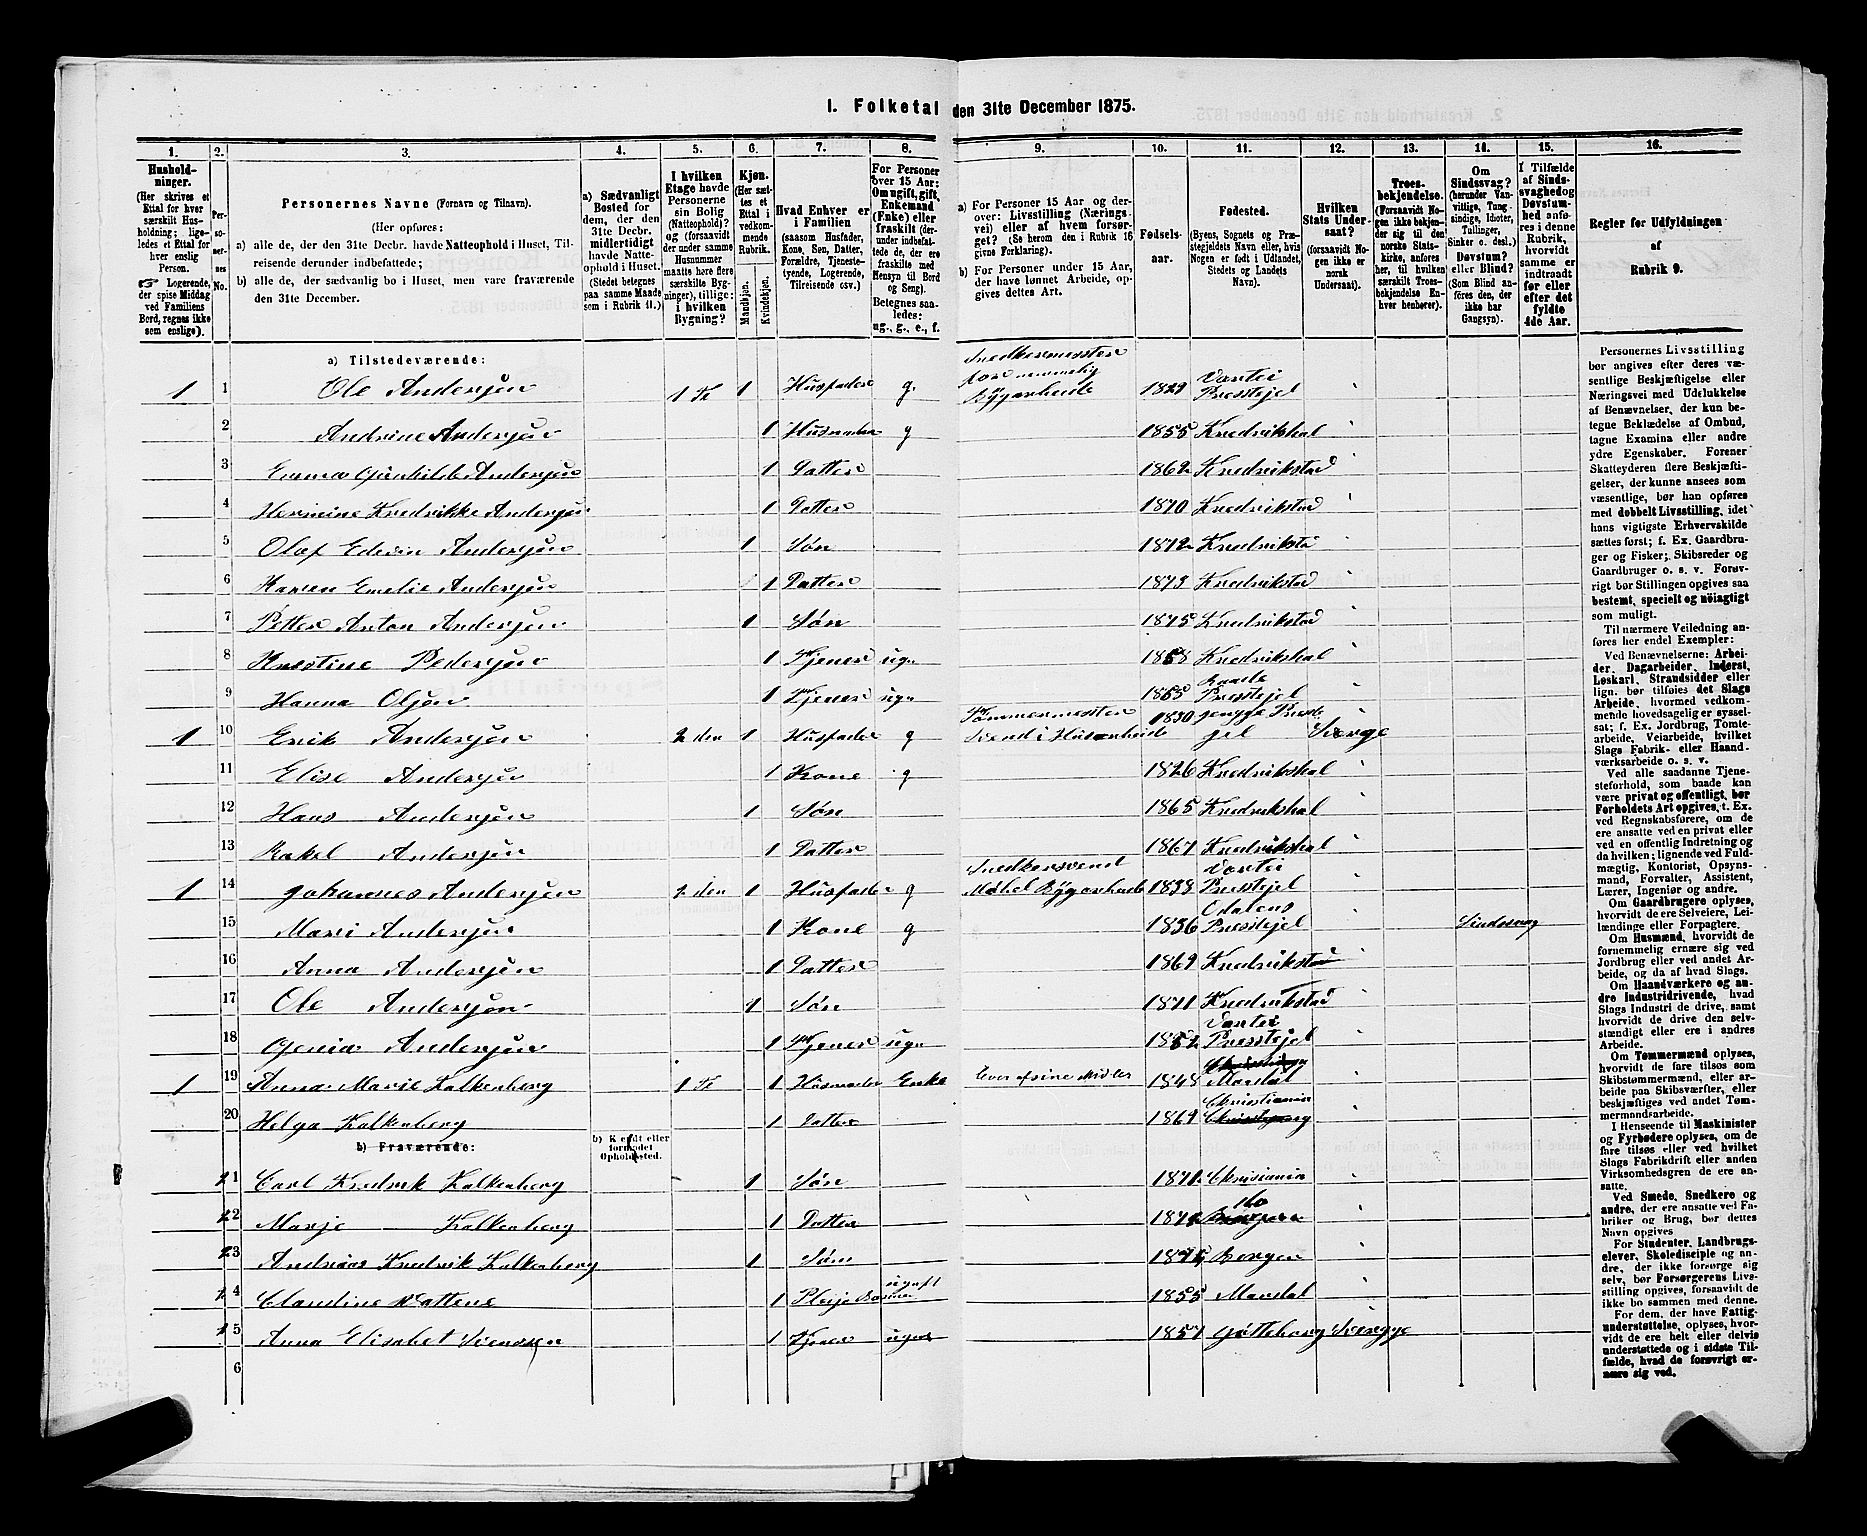 1. Folketal den 31te December 1875.
1. 2. 3. 4. 5. 6. 7. 8. 9. 10. 11. 12. 13. 14. 15. 16.
Hushold-
ninger.
(Her skrives et
Ettal for hver
særskilt Hus-
holdning; lige-
ledes et Ettal for
hver enslig
Person.
☞ Logerende,
der spise Middag
ved Familiens
Bord, regnes ikke
som enslige).
Per-
so-
ner-
nes
No.
Personernes Navne (Fornavn og Tilnavn).
(Her opføres:
a) alle de, der den 31te Decbr. havde Natteophold i Huset, Til-
reisende derunder indbefattede;
b) alle de, der sædvanlig bo i Huset, men vare fraværende
den 31te December.
a) Sædvanligt
Bosted for
dem, der den
31te Decbr.
midlertidigt
havde Natte-
ophold i Huset.
(Stedet betegnes
paa samme Maade
som i Rubrik 11.)
I hvilken
Etage havde
Personerne
sin Bolig
(Natteophold)?
og (forsaavidt
der under samme
Husnummer
maatte høre flere
særskilte Byg-
ninger), tillige:
i hvilken
Bygning?
Kjøn.
(Her sæt-
tes et
Ettal i
vedkom-
mende
Rubrik.
Mandkjøn.
Kvindekjøn.
Hvad Enhver er
i Familien
(saasom Husfader,
Kone, Søn, Datter,
Forældre, Tjeneste-
tyende, Logerende,
Tilreisende osv.)
For Personer
over 15 Aar:
Om ugift, gift,
Enkemand
(Enke) eller
fraskilt (der-
under indbefat-
tede de, der ere
fraskilte med
Hensyn til Bord
og Seng).
Betegnes saa-
ledes:
ug., g., e., f.
a) For Personer 15 Aar og der-
over: Livsstilling (Nærings-
vei) eller af hvem forsør-
get? (Se herom den i Rubrik 16
givne Forklaring).
b) For Personer under 15 Aar,
der have lønnet Arbeide, op-
gives dettes Art.
Fødsels-
aar.
Fødested.
(Byens, Sognets og Præ-
stegjeldets Navn eller, hvis
Nogen er født i Udlandet,
Stedets og Landets
Navn).
Hvilken
Stats Under-
saat?
(forsaavidt No-
gen ikke er
norsk
Undersaat).
Troes-
bekjendelse.
(Forsaavidt No-
gen ikke bekjen-
der sig til den
norske Stats-
kirke, anføres
her, til hvilken
særskilt Troes-
bekjendelse En-
hver henhører).
Om
Sindssvag?
(herunder Van-
vittige, Tung-
sindige, Idioter,
Tullinger,
Sinker o. desl.)
Døvstum?
eller Blind?
(Som Blind an-
føres den, der
ikke har
Gangsyn).
I Tilfælde
af Sinds-
svaghed og
Døvstum-
hed anfø-
res i denne
Rubrik,
hvorvidt
samme er
indtraadt
før eller
efter det
fyldte
4de Aar.
Regler for Udfyldningen
af
Rubrik 9.
a) Tilstedeværende:
1 1 Ole Andersen 1 Tr 1 Husfader g. Snedkermester for nemmelig Bygarbeide 1829 Vartei Presstejel
2 Andrine Andersen 1 Husmoder g 1855 Fredrikshal
3 Emma Gunhilde Andersen 1 Datter 1862 Fredrikstad
4 Hermine Fredrikke Andersen 1 Datter 1870 Fredrikstad
5 Olaf Edevin Andersen 1 Søn 1872 Fredriksta
6 Karen Emelie Andersen 1 Datter 1873 Fredrikstad
7 Petter Anton Andersen 1 Søn 1875 Fredrikstad
8 Kristine Pedersen 1 Tjener ug 1858 Fredrikshal
9 Hanna Olsen 1 Tjener ug 1855 Raade Presstejel
1 10 Erik Andersen 2 den 1 Husfader g Tømmermester Svend i Husarbeide 1830 Jengge Presstejel Sverge
11 Elise Andersen 1 Kone g 1826 Fredrikshal
12 Hans Andersen 1 Søn 1865 Fredrikshal
13 Rakel Andersen 1 Datter 1867 Fredrikshal
1 14 Johannes Andersen 2 den 1 Husfader g Snedkersvend Møbel Bygarbeide 1838 Vartei Presstejel
15 Mari Andersen 1 Kone g 1836 Odalens Presstejel Sindssvag
16 Anna Andersen 1 Datter 1869 Fredrikstad
17 Ole Andersen 1 Søn 1871 Fredrikstad
18 Andersen 1 Tjener ug 1852 Vartei Presstejel
1 19 Anna Marie Falkenberg 1 Tr 1 Husmoder Enke Lever af sine Midler 1848 Mandal
20 Helga Falkenberg 1 Datter 1869 Christiania
b) Fraværende:
b) Kjendt eller
formodet
Opholdssted.
1 Carl Fredrik Falkenberg 1 Søn 1871 Christiania
2 Marje Falkenberg 1 Datter 1872 do
3 Andreas Fredrik Falkenberg 1 Søn 1875 Bergen
4 Claudine Wattene 1 Pleje Barn ugift 1855 Mandal
5 Anna Elisabet Svendsen 1 Tjener ugift 1857 Gøtteborg Sverge
6
Personernes Livsstilling
bør angives efter deres væ-
sentlige Beskjæftigelse eller
Næringsvei med Udelukkelse
af Benævnelser, der kun be-
tegne Beklædelse af Ombud,
tagne Examina eller andre
ydre Egenskaber. Forener
Skatteyderen flere Beskjæfti-
gelser, der kunne ansees som
væsentlige, bør han opføres
med dobbelt Livsstilling, idet
hans vigtigste Erhvervskilde
sættes først; f. Ex. Gaardbru-
ger og Fisker; Skibsreder og
Gaardbruger o. s. v. Forøv-
rigt bør Stillingen opgives saa
bestemt, specielt og nøiagtigt
som muligt.
Til nærmere Veiledning an-
føres her endel Exempler:
Ved Benævnelserne: Arbei-
der, Dagarbeider, Inderst,
Løskarl, Strandsidder eller
lign. bør tilføies det Slags
Arbeide, hvormed vedkom-
mende hovedsagelig er syssel-
sat; f. Ex. Jordbrug, Tomte-
arbeide, Veiarbeide, hvilket
Slags Fabrik- eller Haand-
værksarbeide o. s. v.
Ved alle saadanne Tjene-
steforhold, som baade kan
være privat og offentligt, bør
Forholdets Art opgives, t. Ex.
ved Regnskabsførere, om de
ere ansatte ved en privat eller
ved en offentlig Indretning og
da hvilken; lignende ved Fuld-
mægtig, Kontorist, Opsyns-
mand, Forvalter, Assistent,
Lærer, Ingeniør og andre.
Om Gaardbrugere oplyses,
hvorvidt de ere Selveiere, Lei-
lændinge eller Forpagtere.
Om Husmænd, hvorvidt de
fornemmelig ernære sig ved
Jordbrug eller ved andet Ar-
beide, og da af hvad Slags.
Om Haandværkere og an-
dre Industridrivende, hvad
Slags Industri de drive, samt
hvorvidt de drive den selv-
stændigt eller ere i andres
Arbeide.
Om Tømmermænd oplyses,
hvorvidt de fare tilsøs som
Skibstømmermænd, eller ar-
beide paa Skibsværfter, eller
beskjæftiges ved andet Tøm-
mermandsarbeide.
I Henseende til Maskinister
og Fyrbødere oplyses, om de
fare tilsøs eller ved hvilket
Slags Fabrikdrift eller anden
Virksomhedsgren de ere an-
satte.
Ved Smede, Snedkere og
andre, der ere ansatte ved Fa-
briker og Brug, bør dettes
Navn opgives
For Studenter, Landbrugs-
elever, Skoledisciple og an-
dre, der ikke forsørge sig
selv, bør Forsørgerens Livs-
stilling opgives, forsaavidt de
ikke bo sammen med denne.
For dem, der have Fattig-
understøttelse, oplyses, hvor-
vidt de ere helt eller delvis
understøttede og i sidste Til-
fælde, hvad de forøvrigt er-
nære sig ved.